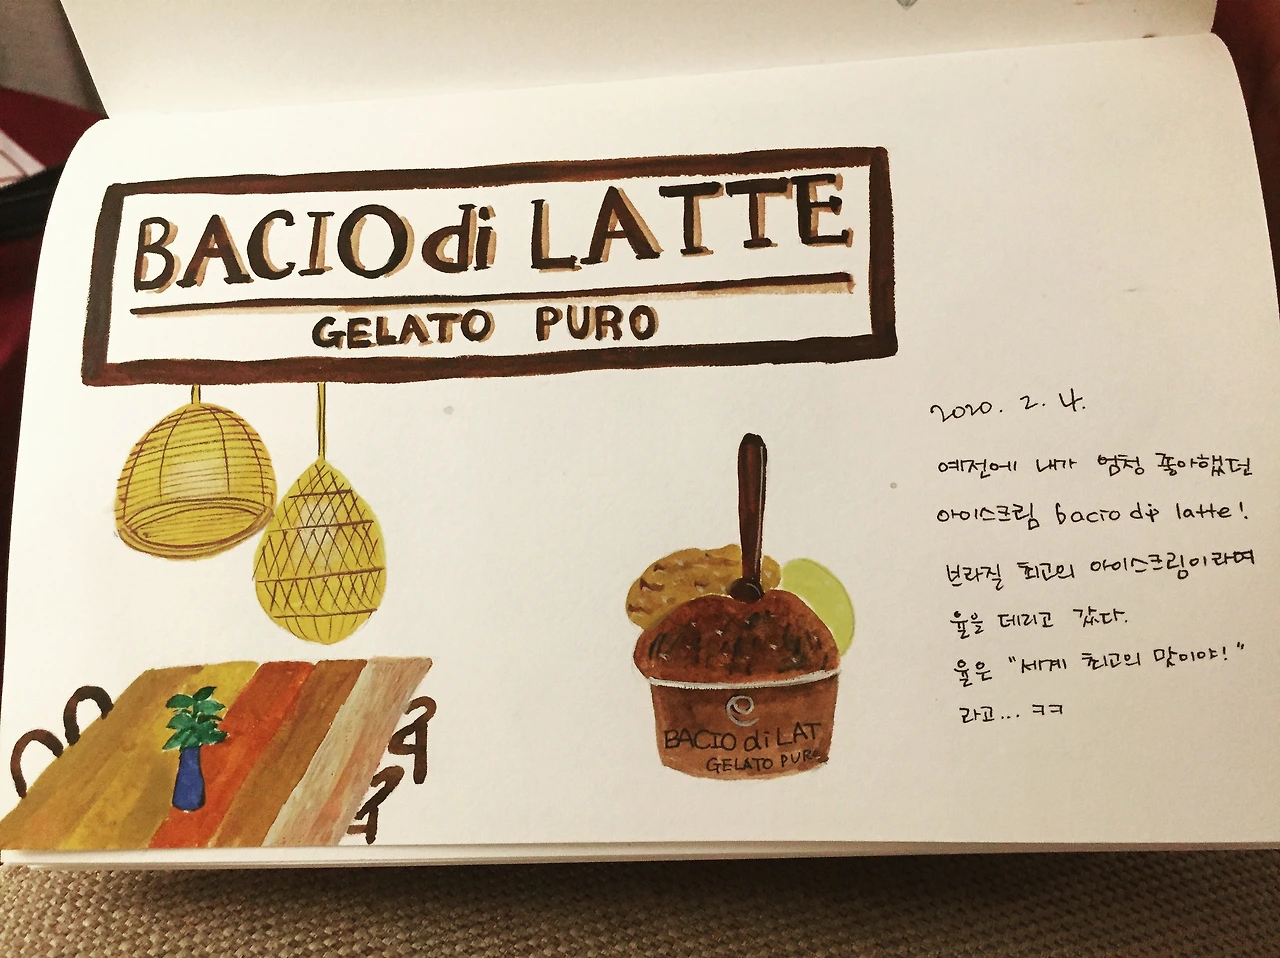 BACIO di LATTE
GELATO PURO
2020. 2. 4.
예전에 내가 엄청 좋아했던
아이스크림 bacio di latte!
브라질 최고의 아이스크림이라며
율을 데리고 갔다.
율은 "세계 최고의 맛이야!"
라고... ㅋㅋ
BACIO di LAT
GELATO PURO